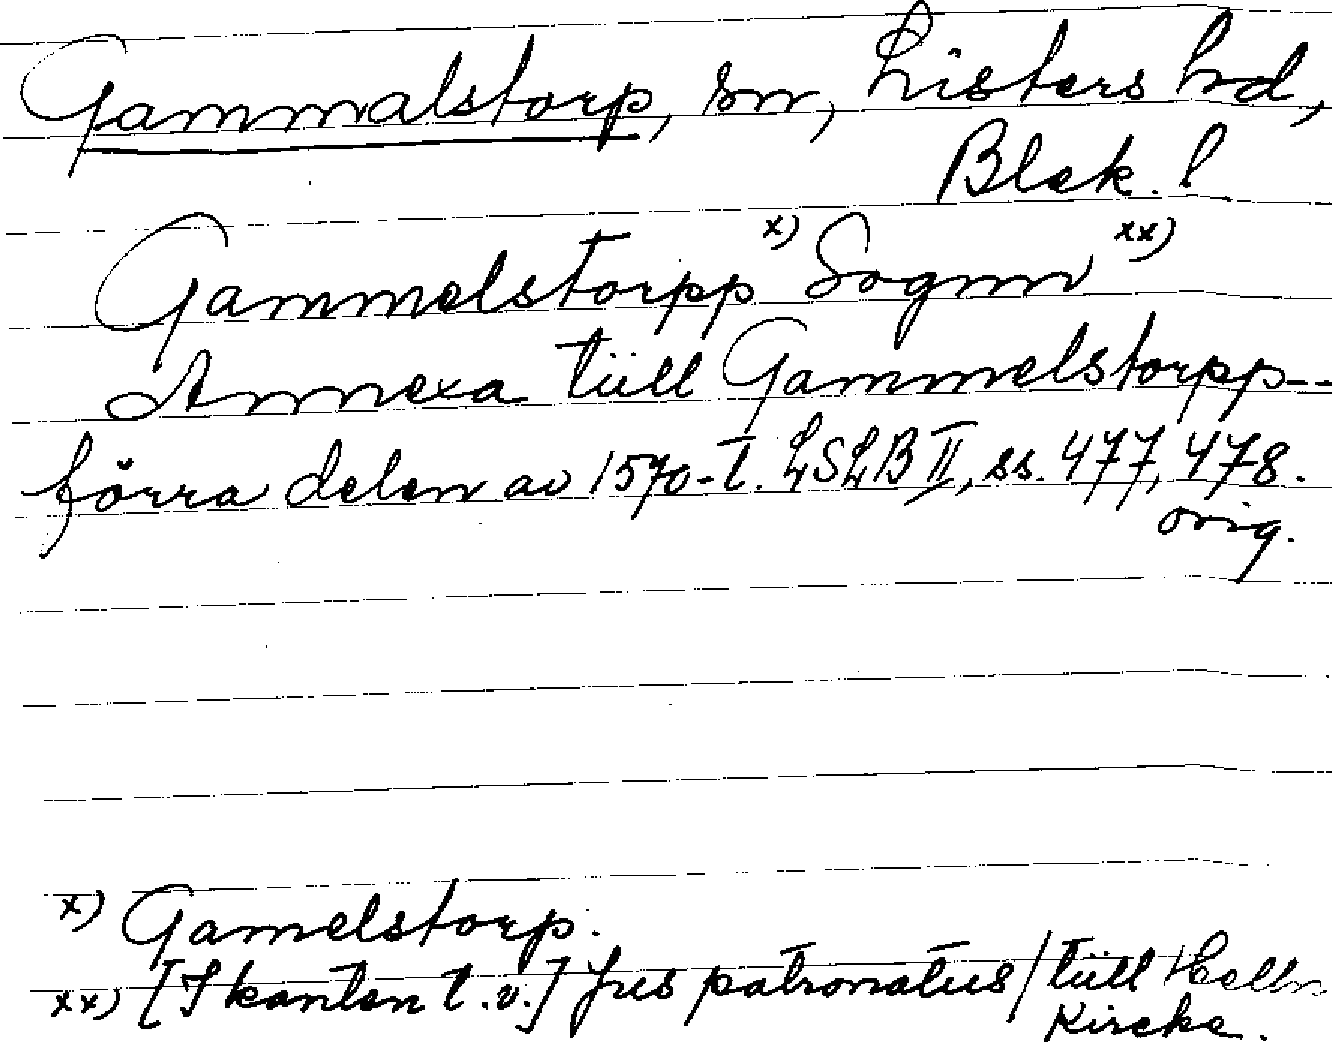 Gammalstorp, sn, Listers hd,
Blek. l
Gammelstorpp x) Sognn xx)
Annexa tüll Gammelstorpp--
förra delen av 1570-t. LSLB II, ss. 477, 478.
orig.
x) Gamelstorp.
xx) [I kanten t.v.] Jus patronatus/tüll
Kircke.